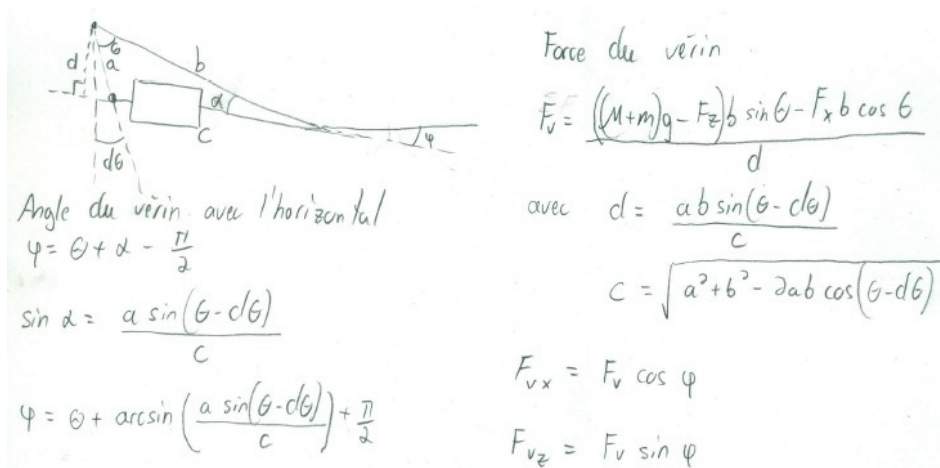 d
a
θ
b
α
C
φ
dθ
Angle du vérin avec l'horizontal
φ = θ + α - π/2
sin α = a sin(θ-dθ) / c
φ = θ + arcsin (a sin(θ-dθ) / c) + π/2
Force du vérin
F_v = ((M+m)g - F_z) b sin θ - F_x b cos θ / d
avec d = ab sin(θ-dθ) / c
c = √(a² + b² - 2ab cos(θ-dθ))
F_vx = F_v cos φ
F_vz = F_v sin φ